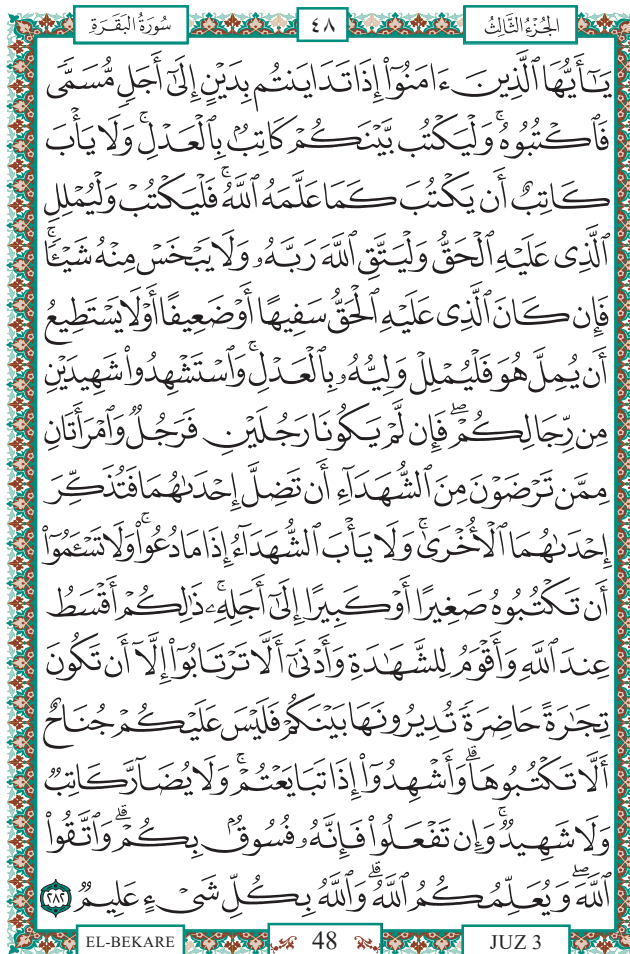 الجُزْءُ الثَّالِثُ ٤٨ سُورَةُ البَقَرَةِ
يَٰٓأَيُّهَا ٱلَّذِينَ ءَامَنُوٓا۟ إِذَا تَدَايَنتُم بِدَيْنٍ إِلَىٰٓ أَجَلٍ مُّسَمًّى
فَٱكْتُبُوهُ ۚ وَلْيَكْتُب بَّيْنَكُمْ كَاتِبٌۢ بِٱلْعَدْلِ ۚ وَلَا يَأْبَ
كَاتِبٌ أَن يَكْتُبَ كَمَا عَلَّمَهُ ٱللَّهُ ۚ فَلْيَكْتُبْ وَلْيُمْلِلِ
ٱلَّذِى عَلَيْهِ ٱلْحَقُّ وَلْيَتَّقِ ٱللَّهَ رَبَّهُۥ وَلَا يَبْخَسْ مِنْهُ شَيْـًٔا ۚ
فَإِن كَانَ ٱلَّذِى عَلَيْهِ ٱلْحَقُّ سَفِيهًا أَوْ ضَعِيفًا أَوْ لَا يَسْتَطِيعُ
أَن يُمِلَّ هُوَ فَلْيُمْلِلْ وَلِيُّهُۥ بِٱلْعَدْلِ ۚ وَٱسْتَشْهِدُوا۟ شَهِيدَيْنِ
مِن رِّجَالِكُمْ ۖ فَإِن لَّمْ يَكُونَا رَجُلَيْنِ فَرَجُلٌ وَٱمْرَأَتَانِ
مِمَّن تَرْضَوْنَ مِنَ ٱلشُّهَدَآءِ أَن تَضِلَّ إِحْدَىٰهُمَا فَتُذَكِّرَ
إِحْدَىٰهُمَا ٱلْأُخْرَىٰ ۚ وَلَا يَأْبَ ٱلشُّهَدَآءُ إِذَا مَا دُعُوا۟ ۚ وَلَا تَسْـَٔمُوٓا۟
أَن تَكْتُبُوهُ صَغِيرًا أَوْ كَبِيرًا إِلَىٰٓ أَجَلِهِۦ ۚ ذَٰلِكُمْ أَقْسَطُ
عِندَ ٱللَّهِ وَأَقْوَمُ لِلشَّهَٰدَةِ وَأَدْنَىٰٓ أَلَّا تَرْتَابُوٓا۟ ۖ إِلَّآ أَن تَكُونَ
تِجَٰرَةً حَاضِرَةً تُدِيرُونَهَا بَيْنَكُمْ فَلَيْسَ عَلَيْكُمْ جُنَاحٌ
أَلَّا تَكْتُبُوهَا ۗ وَأَشْهِدُوٓا۟ إِذَا تَبَايَعْتُمْ ۚ وَلَا يُضَآرَّ كَاتِبٌ
وَلَا شَهِيدٌ ۚ وَإِن تَفْعَلُوا۟ فَإِنَّهُۥ فُسُوقٌۢ بِكُمْ ۗ وَٱتَّقُوا۟
ٱللَّهَ ۖ وَيُعَلِّمُكُمُ ٱللَّهُ ۗ وَٱللَّهُ بِكُلِّ شَىْءٍ عَلِيمٌ ٢٨٢
EL-BEKARE 48 JUZ 3